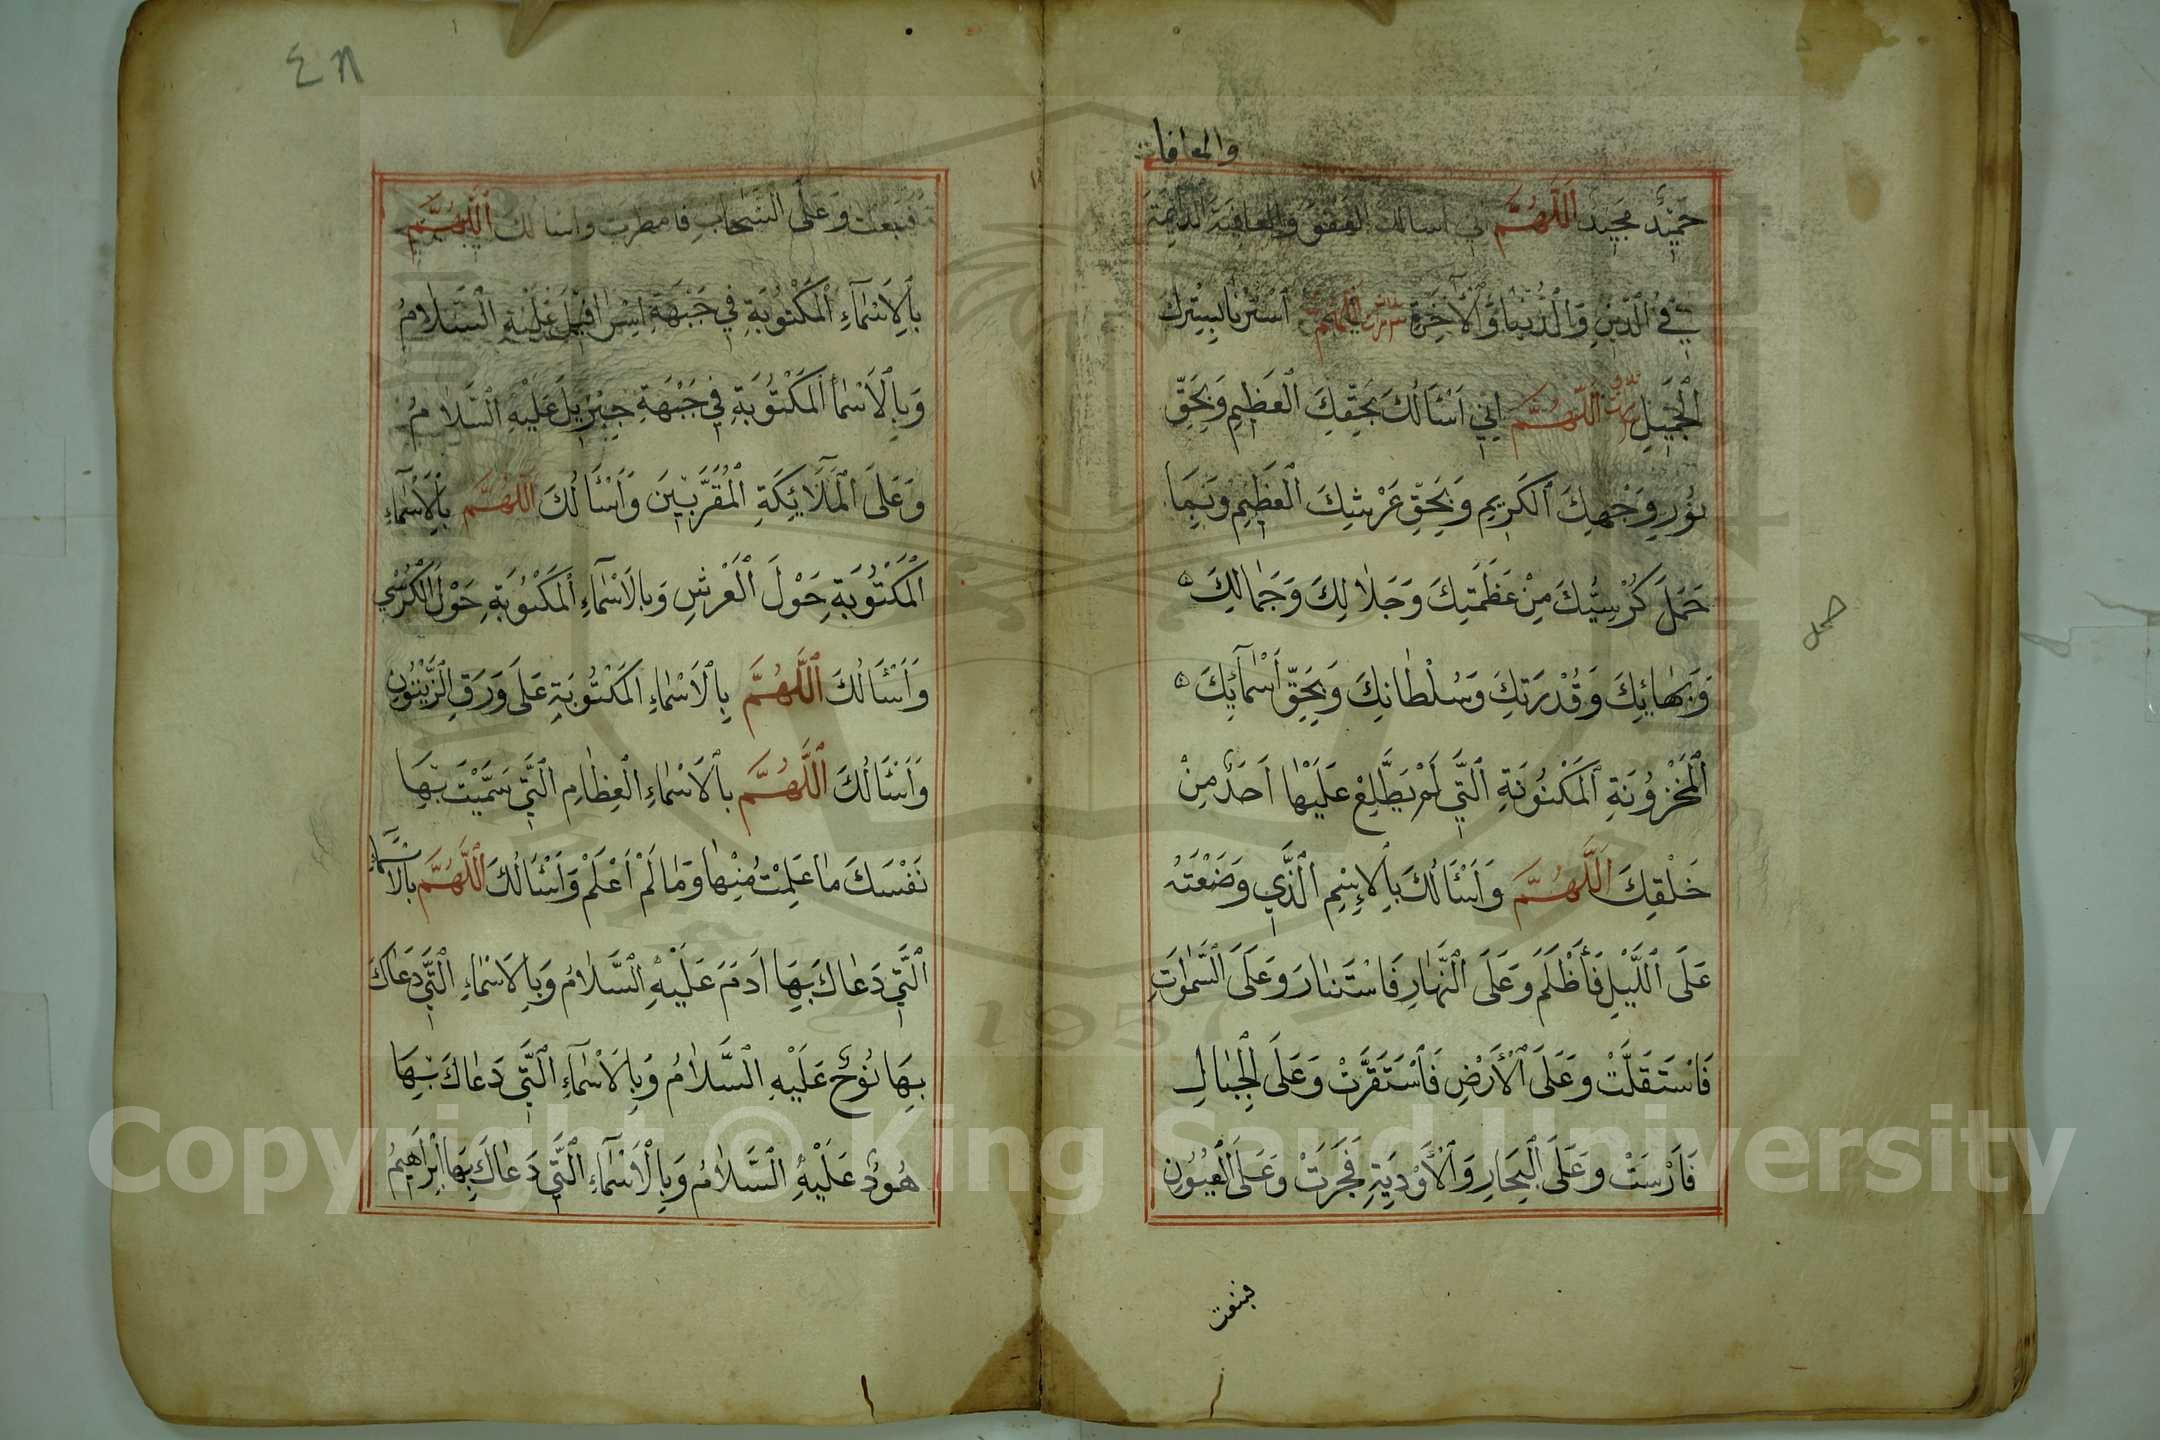 والمعافات
حَمِيدٌ مَجِيدٌ اَللّٰهُمَّ اِنِّي اَسْأَلُكَ الْعَفْوَ وَالْعَافِيَةَ الدَّائِمَةَ
فِي الدِّينِ وَالدُّنْيَا وَالْآخِرَةِ اُسْتُرْنَا بِسِتْرِكَ
الْجَمِيلِ اَللّٰهُمَّ اِنِّي اَسْئَالُكَ بِحَقِّكَ الْعَظِيمِ وَبِحَقِّ
نُورِ وَجْهِكَ الْكَرِيمِ وَبِحَقِّ عَرْشِكَ الْعَظِيمِ وَبِمَا
حَمَلَ كُرْسِيُّكَ مِنْ عَظَمَتِكَ وَجَلَالِكَ وَجَمَالِكَ
وَبَهَائِكَ وَقُدْرَتِكَ وَسُلْطَانِكَ وَبِحَقِّ أَسْمَآئِكَ
الْمَخْزُونَةِ الْمَكْنُونَةِ الَّتِي لَمْ يَطَّلِعْ عَلَيْهَا اَحَدٌ مِنْ
خَلْقِكَ اَللّٰهُمَّ وَاَسْئَالُكَ بِالْإِسْمِ الَّذِي وَضَعْتَهُ
عَلَى اللَّيْلِ فَأَظْلَمَ وَعَلَى النَّهَارِ فَاسْتَنَارَ وَعَلَى السَّمٰوَاتِ
فَاسْتَقَلَّتْ وَعَلَى الْأَرْضِ فَاسْتَقَرَّتْ وَعَلَى الْجِبَالِ
فَاَرْسَتْ وَعَلَى الْبِحَارِ وَالْأَوْدِيَةِ فَجَرَتْ وَعَلَى الْعُيُونِ
فنبعت
صحيح
٤٨
فَنَبَعَتْ وَعَلَى السَّحَابِ فَامْطَرَتْ وَاَسْئَالُكَ اَللّٰهُمَّ
بِالْاَسْمَآءِ الْمَكْتُوبَةِ فِي جَبْهَةِ اِسْرَافِيلَ عَلَيْهِ السَّلَامُ
وَبِالْاَسْمَا الْمَكْتُوبَةِ فِي جَبْهَةِ جِبْرِيلَ عَلَيْهِ السَّلَامُ
وَعَلَى الْمَلَآئِكَةِ الْمُقَرَّبِينَ وَاَسْئَالُكَ اَللّٰهُمَّ بِالْاَسْمَآءِ
الْمَكْتُوبَةِ حَوْلَ الْعَرْشِ وَبِالْاَسْمَآءِ الْمَكْتُوبَةِ حَوْلَ الْكُرْسِي
وَاَسْئَالُكَ اَللّٰهُمَّ بِالْاَسْمَاءِ الْمَكْتُوبَةِ عَلَى وَرَقِ الزَّيْتُونِ
وَاَسْئَالُكَ اَللّٰهُمَّ بِالْاَسْمَاءِ الْعِظَامِ الَّتِي سَمَّيْتَ بِهَا
نَفْسَكَ مَا عَلِمْتُ مِنْهَا وَمَا لَمْ اَعْلَمْ وَاَسْئَالُكَ اَللّٰهُمَّ بِالْاَسْمَاءِ
الَّتِي دَعَاكَ بِهَا اَدَمَ عَلَيْهِ السَّلَامُ وَبِالْاَسْمَاءِ الَّتِي دَعَاكَ
بِهَا نُوحٌ عَلَيْهِ السَّلَامُ وَبِالْاَسْمَآءِ الَّتِي دَعَاكَ بِهَا
هُودٌ عَلَيْهِ السَّلَامُ وَبِالْاَسْمَآءِ الَّتِي دَعَاكَ بِهَا اِبْرَاهِيمُ
1957
Copyright © King Saud University